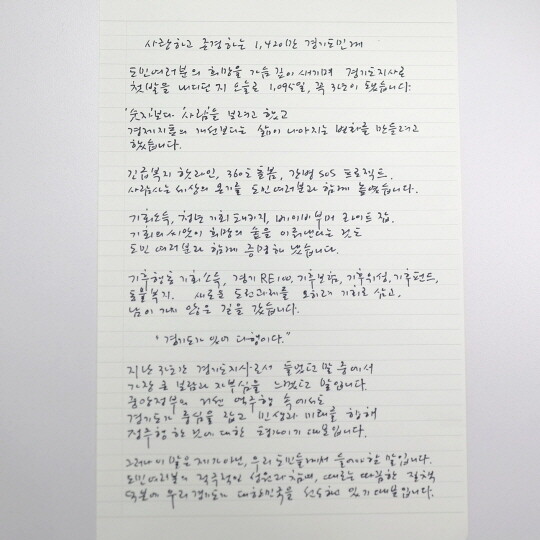 사랑하고 존경하는 1,420만 경기도민께
도민여러분의 희망을 가슴 깊이 새기며 경기도지사로
첫발을 내디딘 지 오늘로 1,095일, 꼭 3년이 됐습니다.
'숫자'보다 '사람'을 보려고 했고
경제지표의 개선보다는 삶이 나아지는 변화를 만들려고
했습니다.
긴급복지 핫라인, 360° 돌봄, 간병 SOS 프로젝트.
사람사는 세상의 온기를 도민여러분과 함께 높였습니다.
기회소득, 청년 기회 패키지, 베이비부머 라이트 잡.
기회의 씨앗이 희망의 숲을 이뤄낸다는 것도
도민 여러분과 함께 증명해 냈습니다.
기후행동 기회소득, 경기 RE100, 기후보험, 기후위성, 기후펀드,
동물복지. 새로운 도전과제를 오히려 기회로 삼고,
남이 가지 않은 길을 갔습니다.
"경기도가 있어 다행이다."
지난 3년간 경기도지사로서 들었던 말 중에서
가장 큰 보람과 자부심을 느꼈던 말입니다.
중앙정부의 거센 역주행 속에서도
경기도가 중심을 잡고 민생과 미래를 향해
정주행한 것에 대한 평가이기 때문입니다.
그러나 이 말은 제가 아닌, 우리 도민들께서 들어야 할 말입니다.
도민여러분의 적극적인 성원과 참여, 때로는 따끔한 질책
덕분에 우리 경기도가 대한민국을 선도하고 있기 때문입니다.